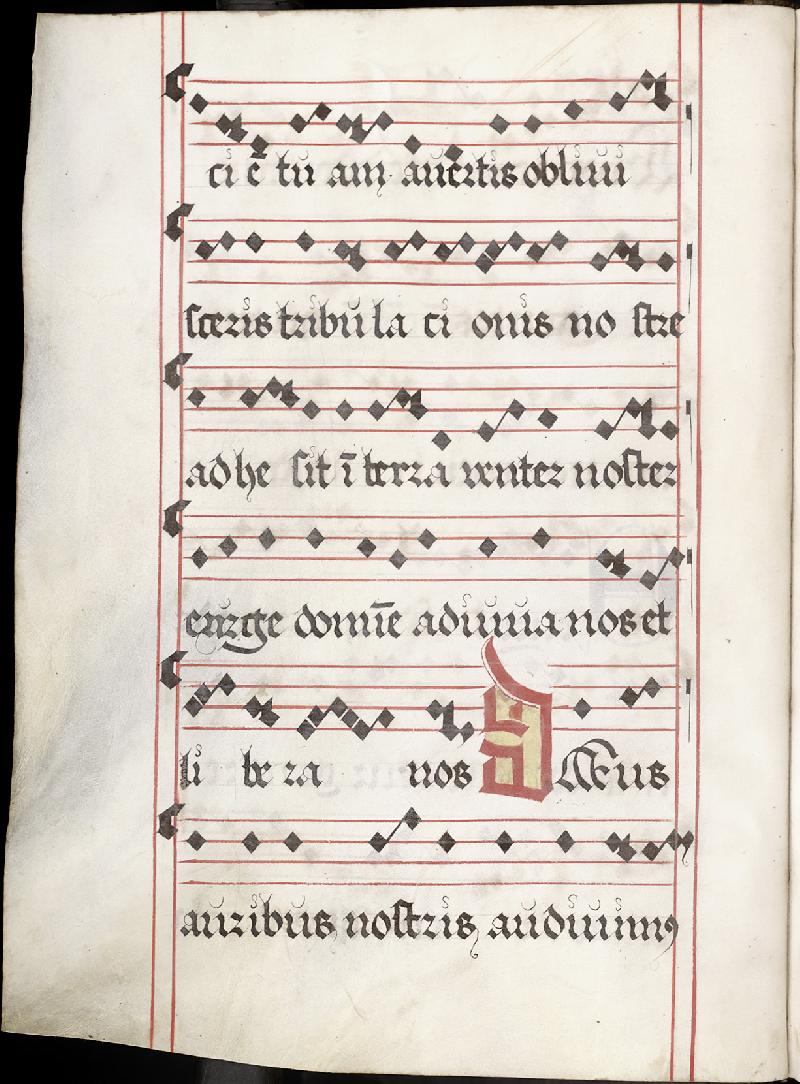 ci ē tu am auertis obliui
sceris tribu la ci onis no stre
ad he sit ī terra venter noster
exurge domīe adiuua nos et
li be ra nos Deus
auribus nostris audiuimus